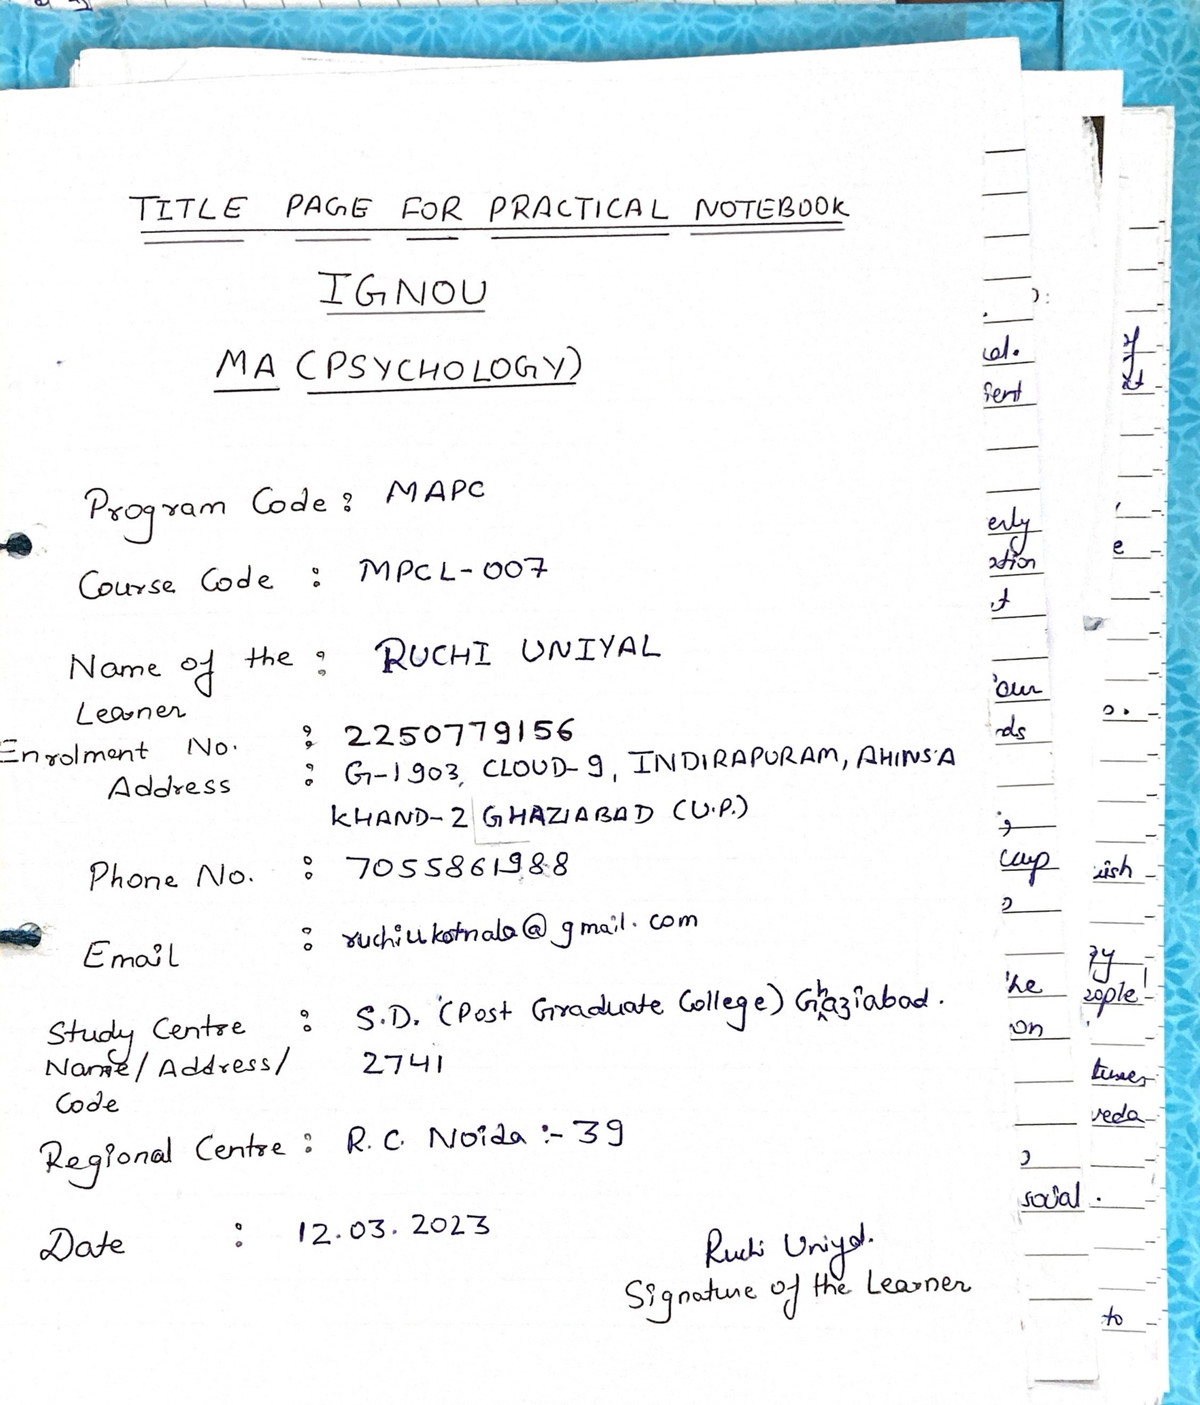 TITLE PAGE FOR PRACTICAL NOTEBOOK
IGNOU
MA (PSYCHOLOGY)
Program Code : MAPC
Course Code : MPCL-007
Name of the : RUCHI UNIYAL
Learner
Enrolment No. : 2250779156
Address : G-1903, CLOUD-9, INDIRAPURAM, AHINSA
KHAND-2 GHAZIABAD (U.P.)
Phone No. : 7055861988
Email : ruchiukotnala@gmail.com
Study Centre : S.D. (Post Graduate College) Ghaziabad.
Name/Address/ 2741
Code
Regional Centre : R.C. Noida :- 39
Date : 12.03.2023
Ruchi Uniyal.
Signature of the Learner
social.
to